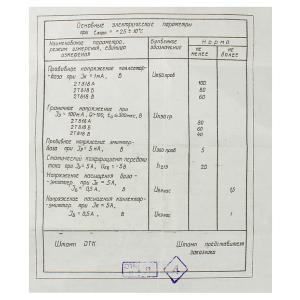 Основные электрические параметры
при tокр = 25 ± 10°С
Наименование параметра, режим измерения, единица измерения
Буквенное обозначение
Норма
не менее
не более
Пробивное напряжение коллектор-
база при Jк = 1 мА, В
Uкбо проб
2Т818А 100
2Т818Б 80
2Т818В 60
Граничное напряжение при
Uкэо гр
2Т818А 80
2Т818Б 60
2Т818В 40
Пробивное напряжение эмиттер-
база при Jэ = 5 мА, В
Uэбо проб
5
Статический коэффициент передачи
тока при Jк = 5 А, Uкб = -5 В
h21э
20
Напряжение насыщения база-
эмиттер при Jк = 5 А
Jб = 0,5 А, В
Uбэнас
1,5
Напряжение насыщения коллектор-
эмиттер при Jк = 5 А
Jб = 0,5 А, В
Uкэнас
1
Штамп ОТК
Штамп представителя
заказчика